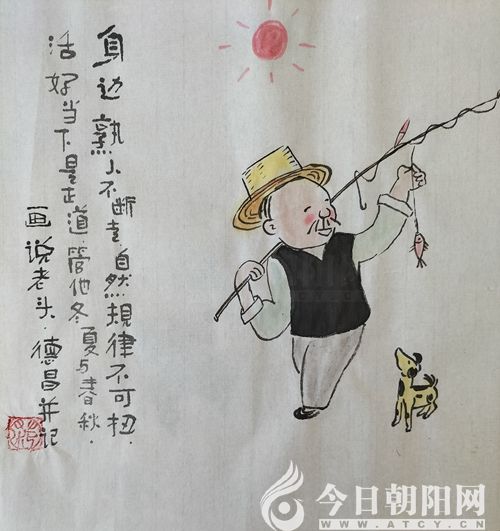 身边熟人不断走自然规律不可扭.
活好当下是正道管他冬夏与春秋.
画说老头.德昌并记
今日朝阳网
WWW.ATCY.CN